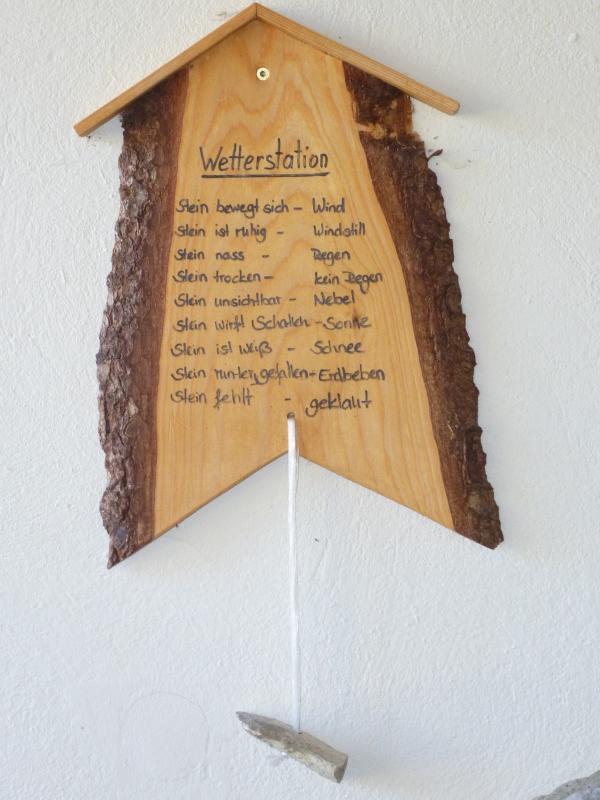 Wetterstation
Stein bewegt sich - Wind
Stein ist ruhig - Windstill
Stein nass - Regen
Stein trocken - kein Regen
Stein unsichtbar - Nebel
Stein wirft Schatten - Sonne
Stein ist weiß - Schnee
Stein runtergefallen - Erdbeben
Stein fehlt - geklaut